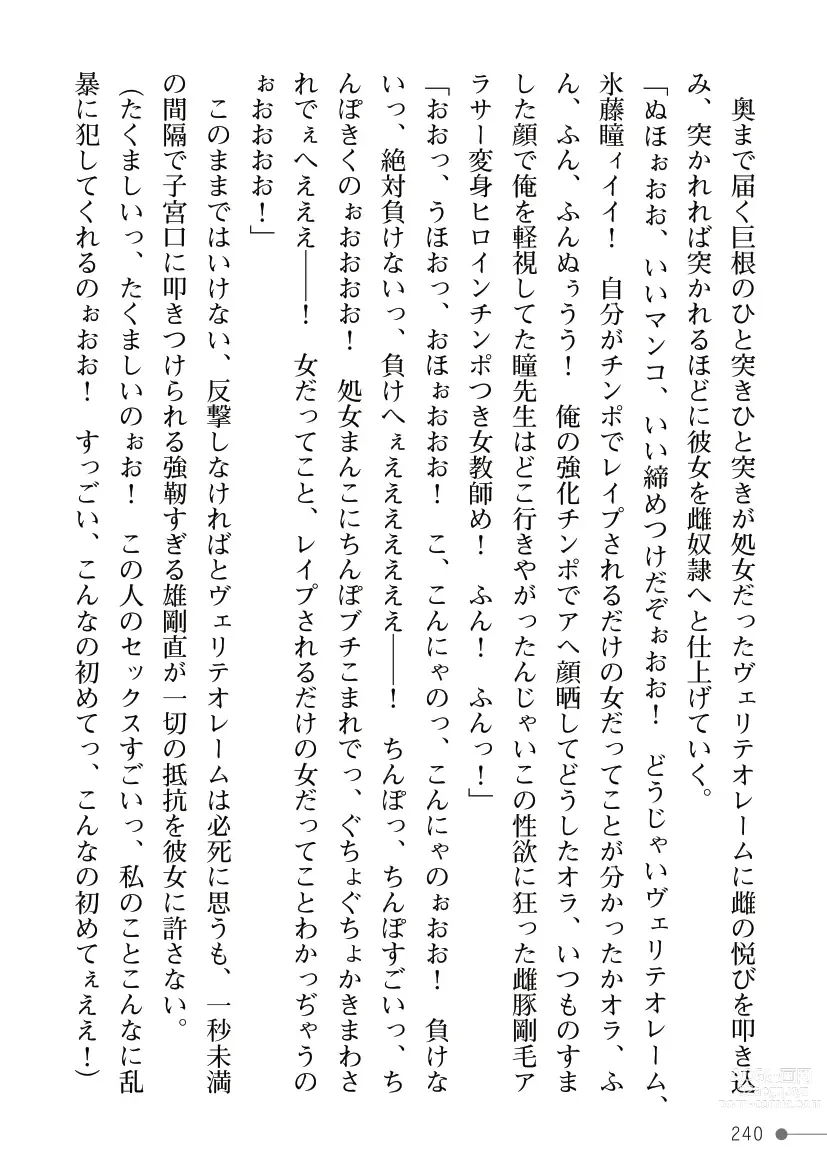 奥まで届く巨根のひと突きひと突きが処女だったヴェリテオレームに雌の悦びを叩き込
み、突かれれば突かれるほどに彼女を雌奴隷へと仕上げていく。
「ぬほぉおお、いいマンコ、いい締めつけだぞぉおお！　どうじゃいヴェリテオレーム、
氷藤瞳ィイイ！　自分がチンポでレイプされるだけの女だってことが分かったかオラ、ふ
ん、ふん、ふんぬぅうう！　俺の強化チンポでアヘ顔晒してどうしたオラ、いつものすま
した顔で俺を軽視してた瞳先生はどこ行きやがったんじゃいこの性欲に狂った雌豚剛毛ア
ラサー変身ヒロインチンポつき女教師め！　ふん！　ふんっ！」
「おおっ、うほおっ、おほぉおおお！　こ、こんにゃのっ、こんにゃのぉおお！　負けな
いっ、絶対負けないっ、負けへぇええええええ――！　ちんぽっ、ちんぽすごいっ、ち
んぽきくのぉおおおお！　処女まんこにちんぽブチこまれでっ、ぐちょぐちょかきまわさ
れでぇへえええ――！　女だってこと、レイプされるだけの女だってことわかっぢゃうの
ぉおおおお！」
このままではいけない、反撃しなければとヴェリテオレームは必死に思うも、一秒未満
の間隔で子宮口に叩きつけられる強靭すぎる雄剛直が一切の抵抗を彼女に許さない。
（たくましいっ、たくましいのぉお！　この人のセックスすごいっ、私のことこんなに乱
暴に犯してくれるのぉおお！　すっごい、こんなの初めてっ、こんなの初めてぇええ！）
240